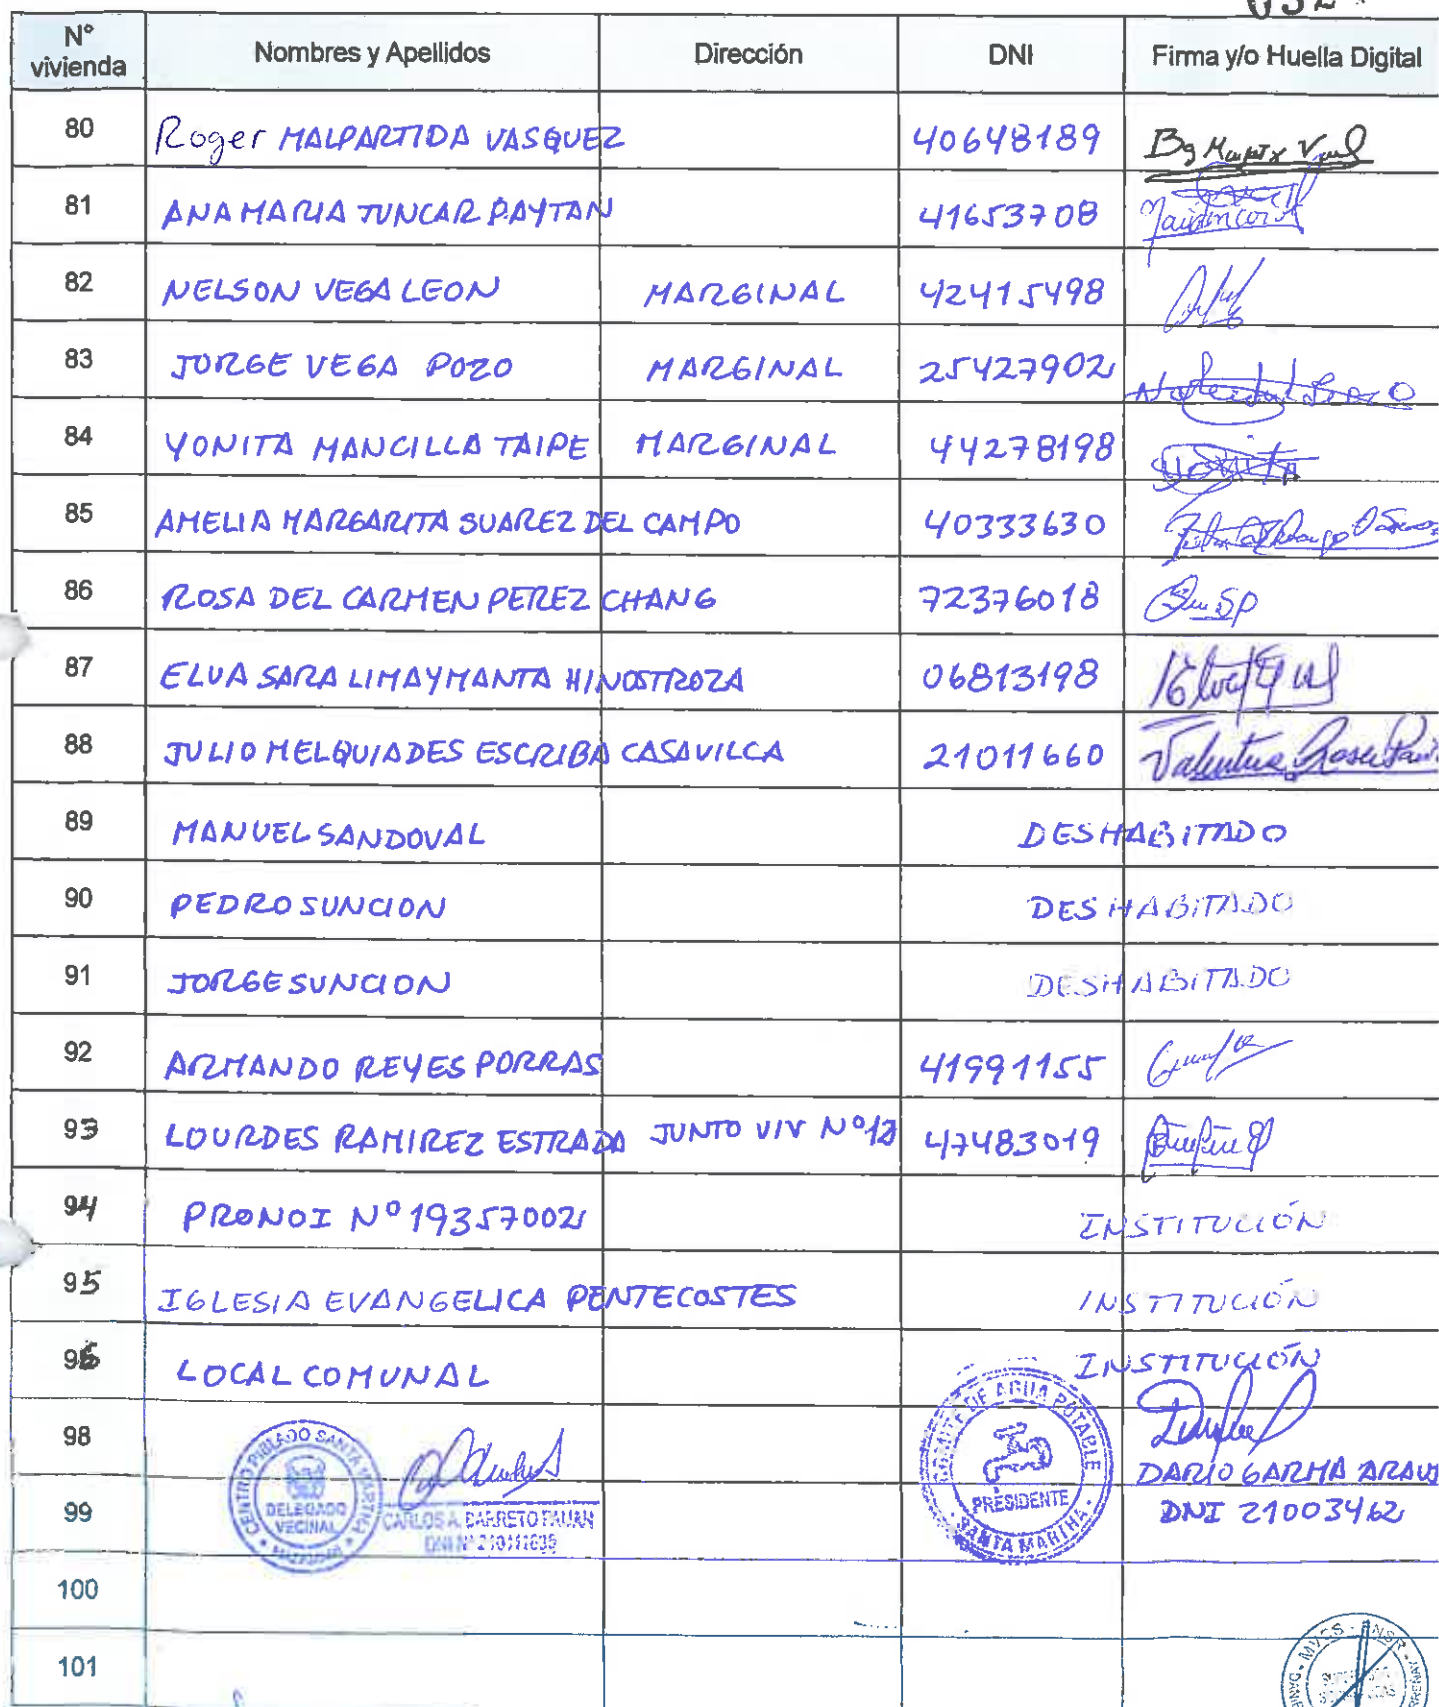 N° vivienda Nombres y Apellidos Dirección DNI Firma y/o Huella Digital
80 Roger MALPARTIDA VASQUEZ 40648189
81 ANA MARIA JUNCAR PAYTAN 41653708
82 NELSON VEGA LEON MARGINAL 42415498
83 JORGE VEGA POZO MARGINAL 25427902
84 YONITA MANCILLA TAIPE MARGINAL 44278198 YONITA
85 AMELIA MARGARITA SUAREZ DEL CAMPO 40333630
86 ROSA DEL CARMEN PEREZ CHANG 72376018
87 ELVA SARA LIMAYMANTA HINOSTROZA 06813198
88 JULIO MELQUIADES ESCRIBA CASAVILCA 21011660
89 MANUEL SANDOVAL DESHABITADO
90 PEDRO SUNCION DESHABITADO
91 JORGE SUNCION DESHABITADO
92 ARMANDO REYES PORRAS 41991155
93 LOURDES RAMIREZ ESTRADA JUNTO VIV Nº 47483019
94 PRONOI Nº 19357002 INSTITUCIÓN
95 IGLESIA EVANGELICA PENTECOSTES INSTITUCIÓN
96 LOCAL COMUNAL INSTITUCIÓN
98
DARIO GARMA ARAUJ
99
DNI 21003462
CENTRO POBLADO SANTA MARTHA
DELEGADO VECINAL
CARLOS A. BARRETO PAUAN
COMITE DE AGUA POTABLE
PRESIDENTE
SANTA MARTHA
100
101
MVCS - PNSR